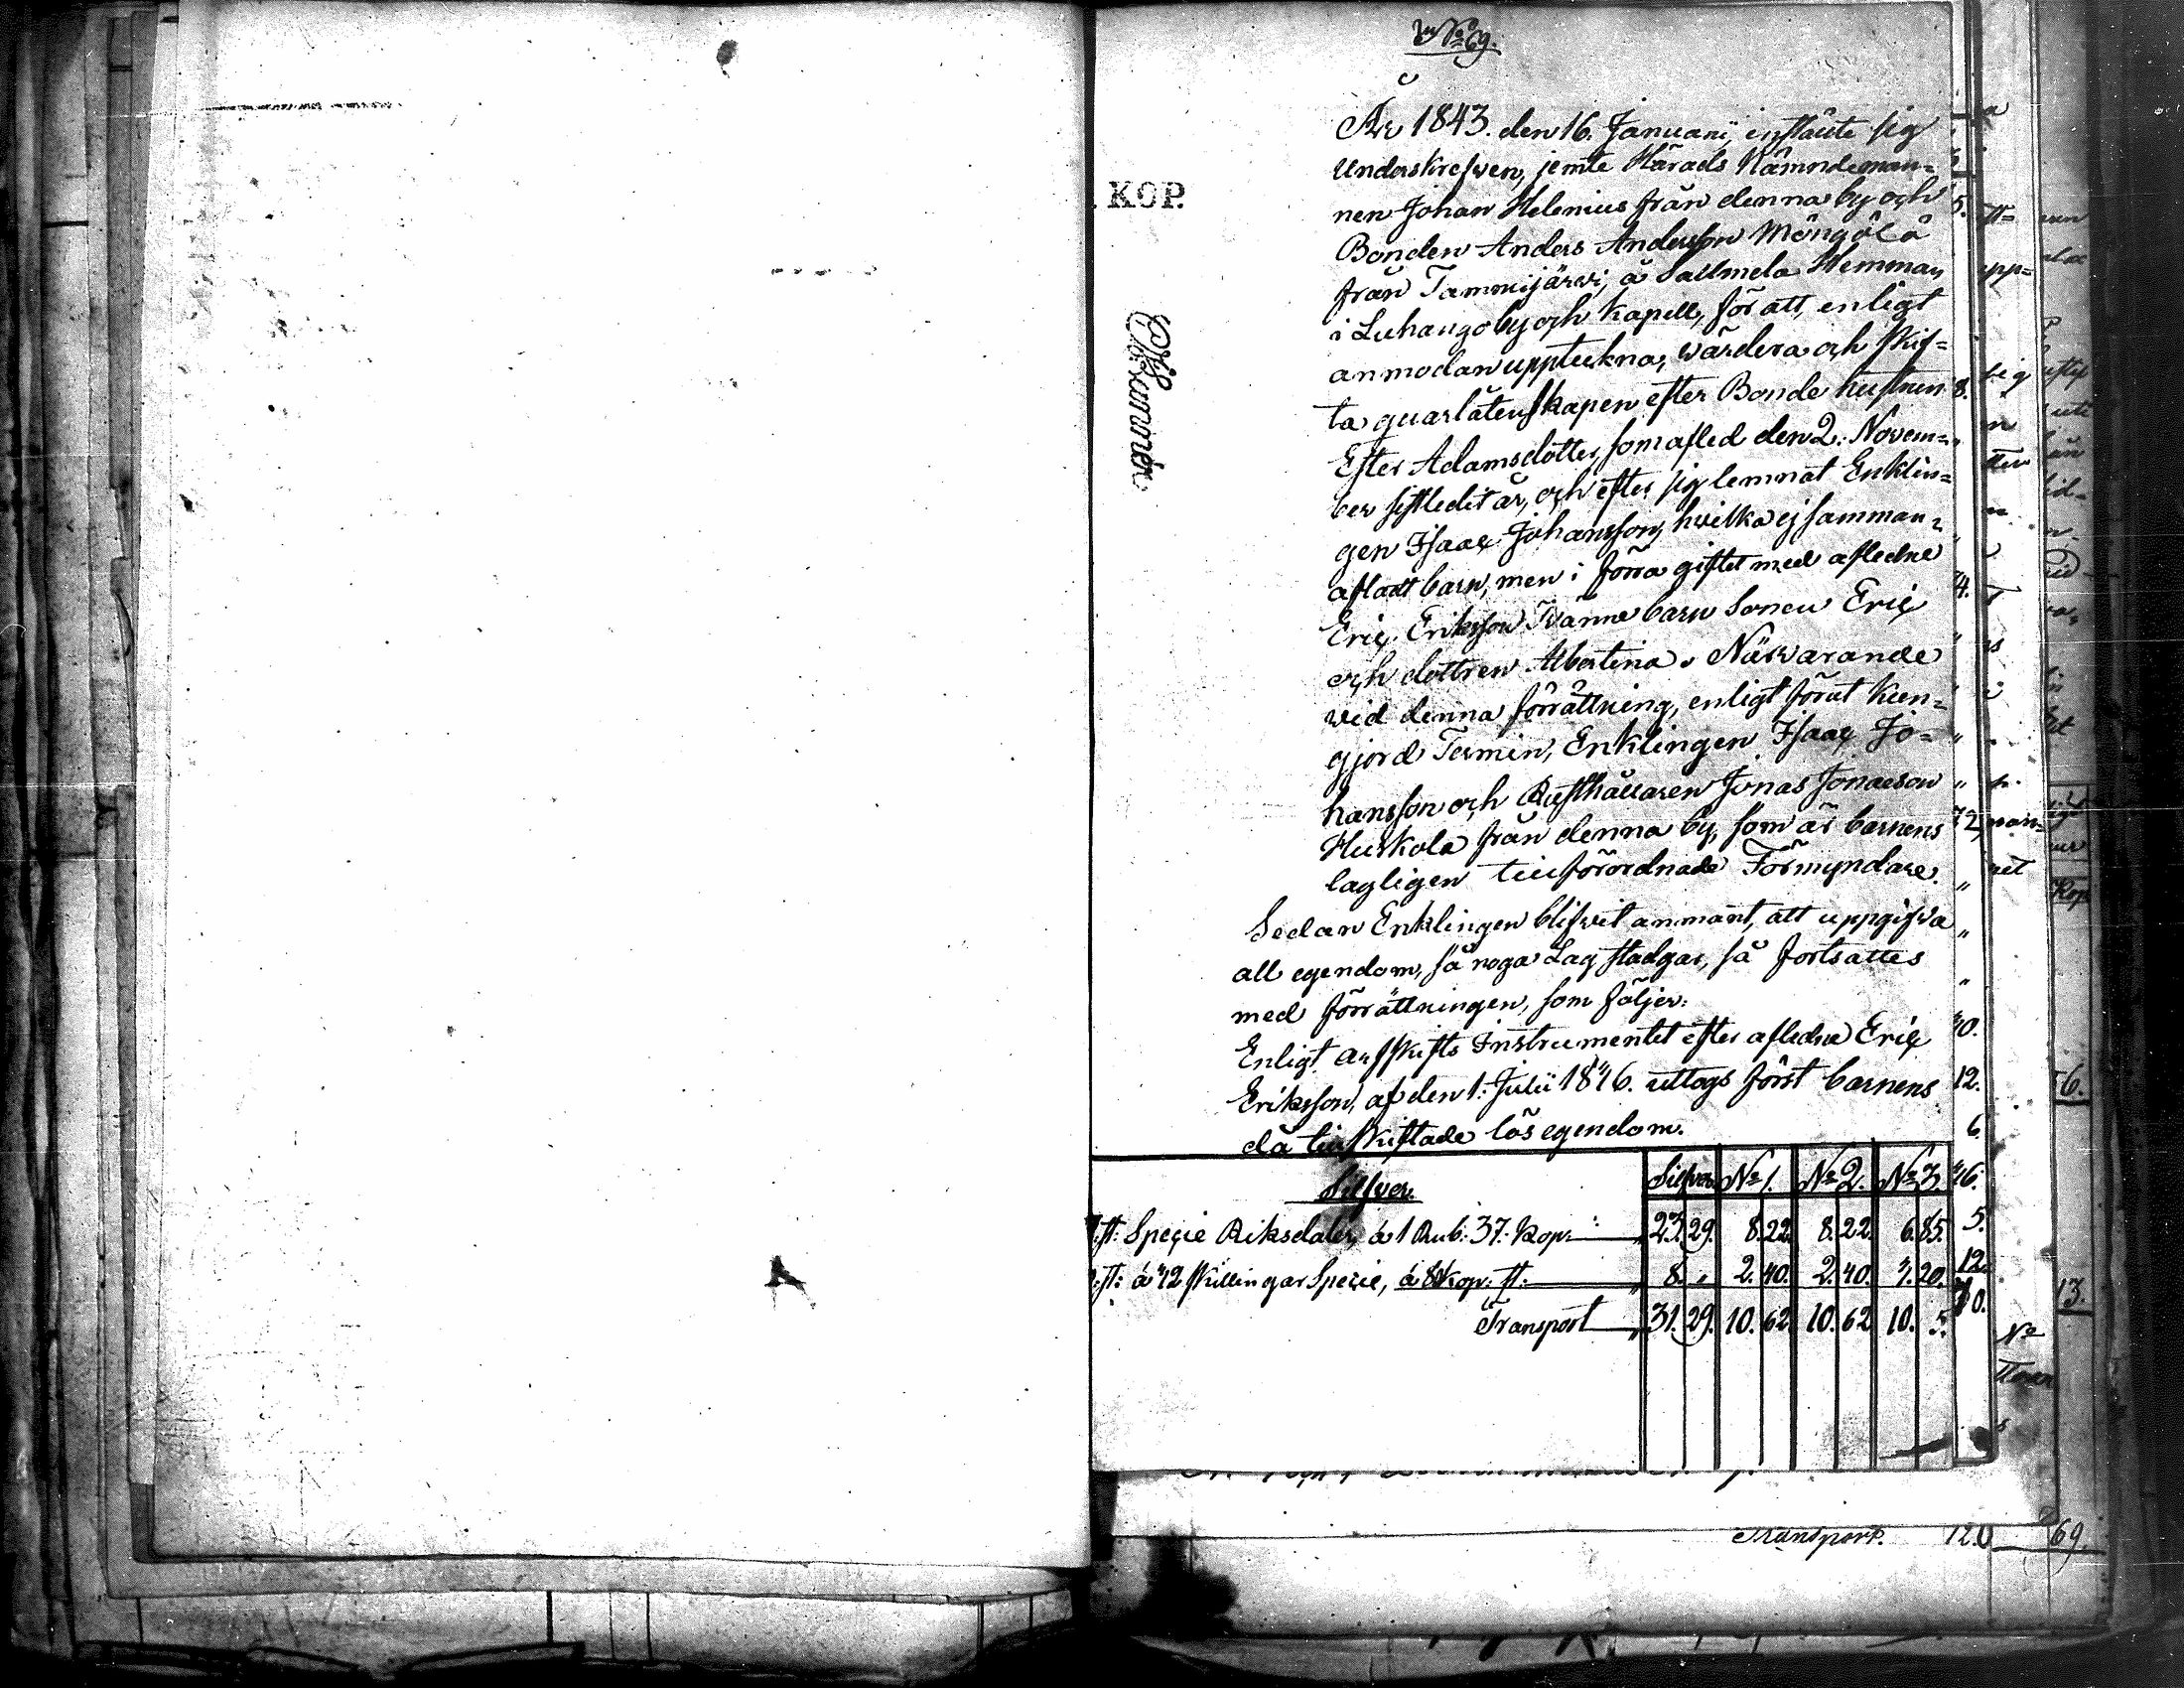 No 69.
År 1843. den 16. Januarii, instälte sig
Underskrefven, jemte Härads Nämndeman=
nen Johan Helenius från denna by och
Bonden Anders Andersson Möngölä
från Tammijärvi, å Sallmela Hemman
i Luhango by och Kapell, för att, enligt
anmodan uppteckna, värdera och skif=
ta quarlåtenskapen efter Bonde hustrun
Ester Adamsdotter, som afled den 2. Novem=
ber sistledit år, och efter sig lemnat Enklin=
gen Isaac Johansson, hvilka ej samman=
aflat barn, men i förra giftet med afledne
Eric Eriksson Tvänne barn Sonen Eric
och dottren Albertina. Närvarande
vid denna förrättning, enligt förut kun=
gjord Termin, Enklingen Isaac Jo=
hansson och Rusthållaren Jonas Jonasson
Hurkola från denna by, som är barnens
lagligen tillförordnade Förmyndare.
Sedan Enklingen blifvit anmant, att uppgifva
all egendom, så noga Lag stadgar, så fortsattes
med förrättningen, som följer:
Enligt arfskifts Instrumentet efter afledne Eric
Eriksson, af den 1. Julii 1846. uttogs först barnens
då tillskiftade lösegendom.
KOP.
Silfver. Silfver No 1. No 2. No 3.
st: Specie Riksdaler, á 1 Rub: 37: Kop: 23. 29. 8. 22. 8. 22. 6. 85.
st: á 12 skillingar Specie, á Kop: st: 8. „ 2. 40. 2. 40. 3. 20.
Transport 31. 29. 10. 62. 10. 62. 10. 5.
Transport. 120 69.